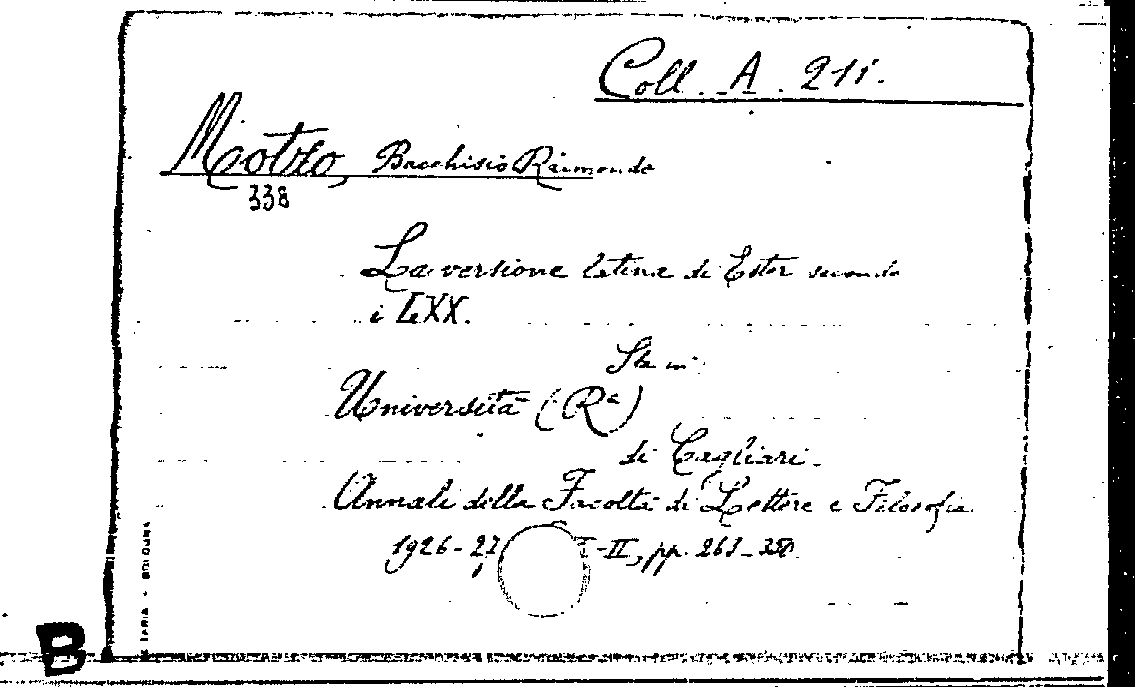 Coll. A. 211.
Motzo, Bacchisio Raimondo
338
La versione latina di Ester secondo
i LXX.
Sta in:
Università (Rª)
di Cagliari.
Annali della Facoltà di Lettere e Filosofia
1926-27, I-II, pp.
B
BOLOGNA